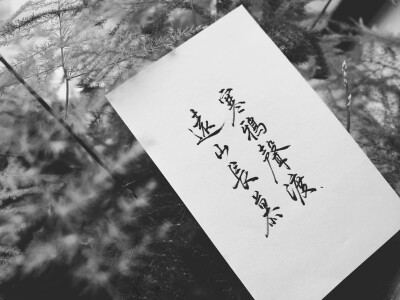 寒鴉聲渡
遠山長慕